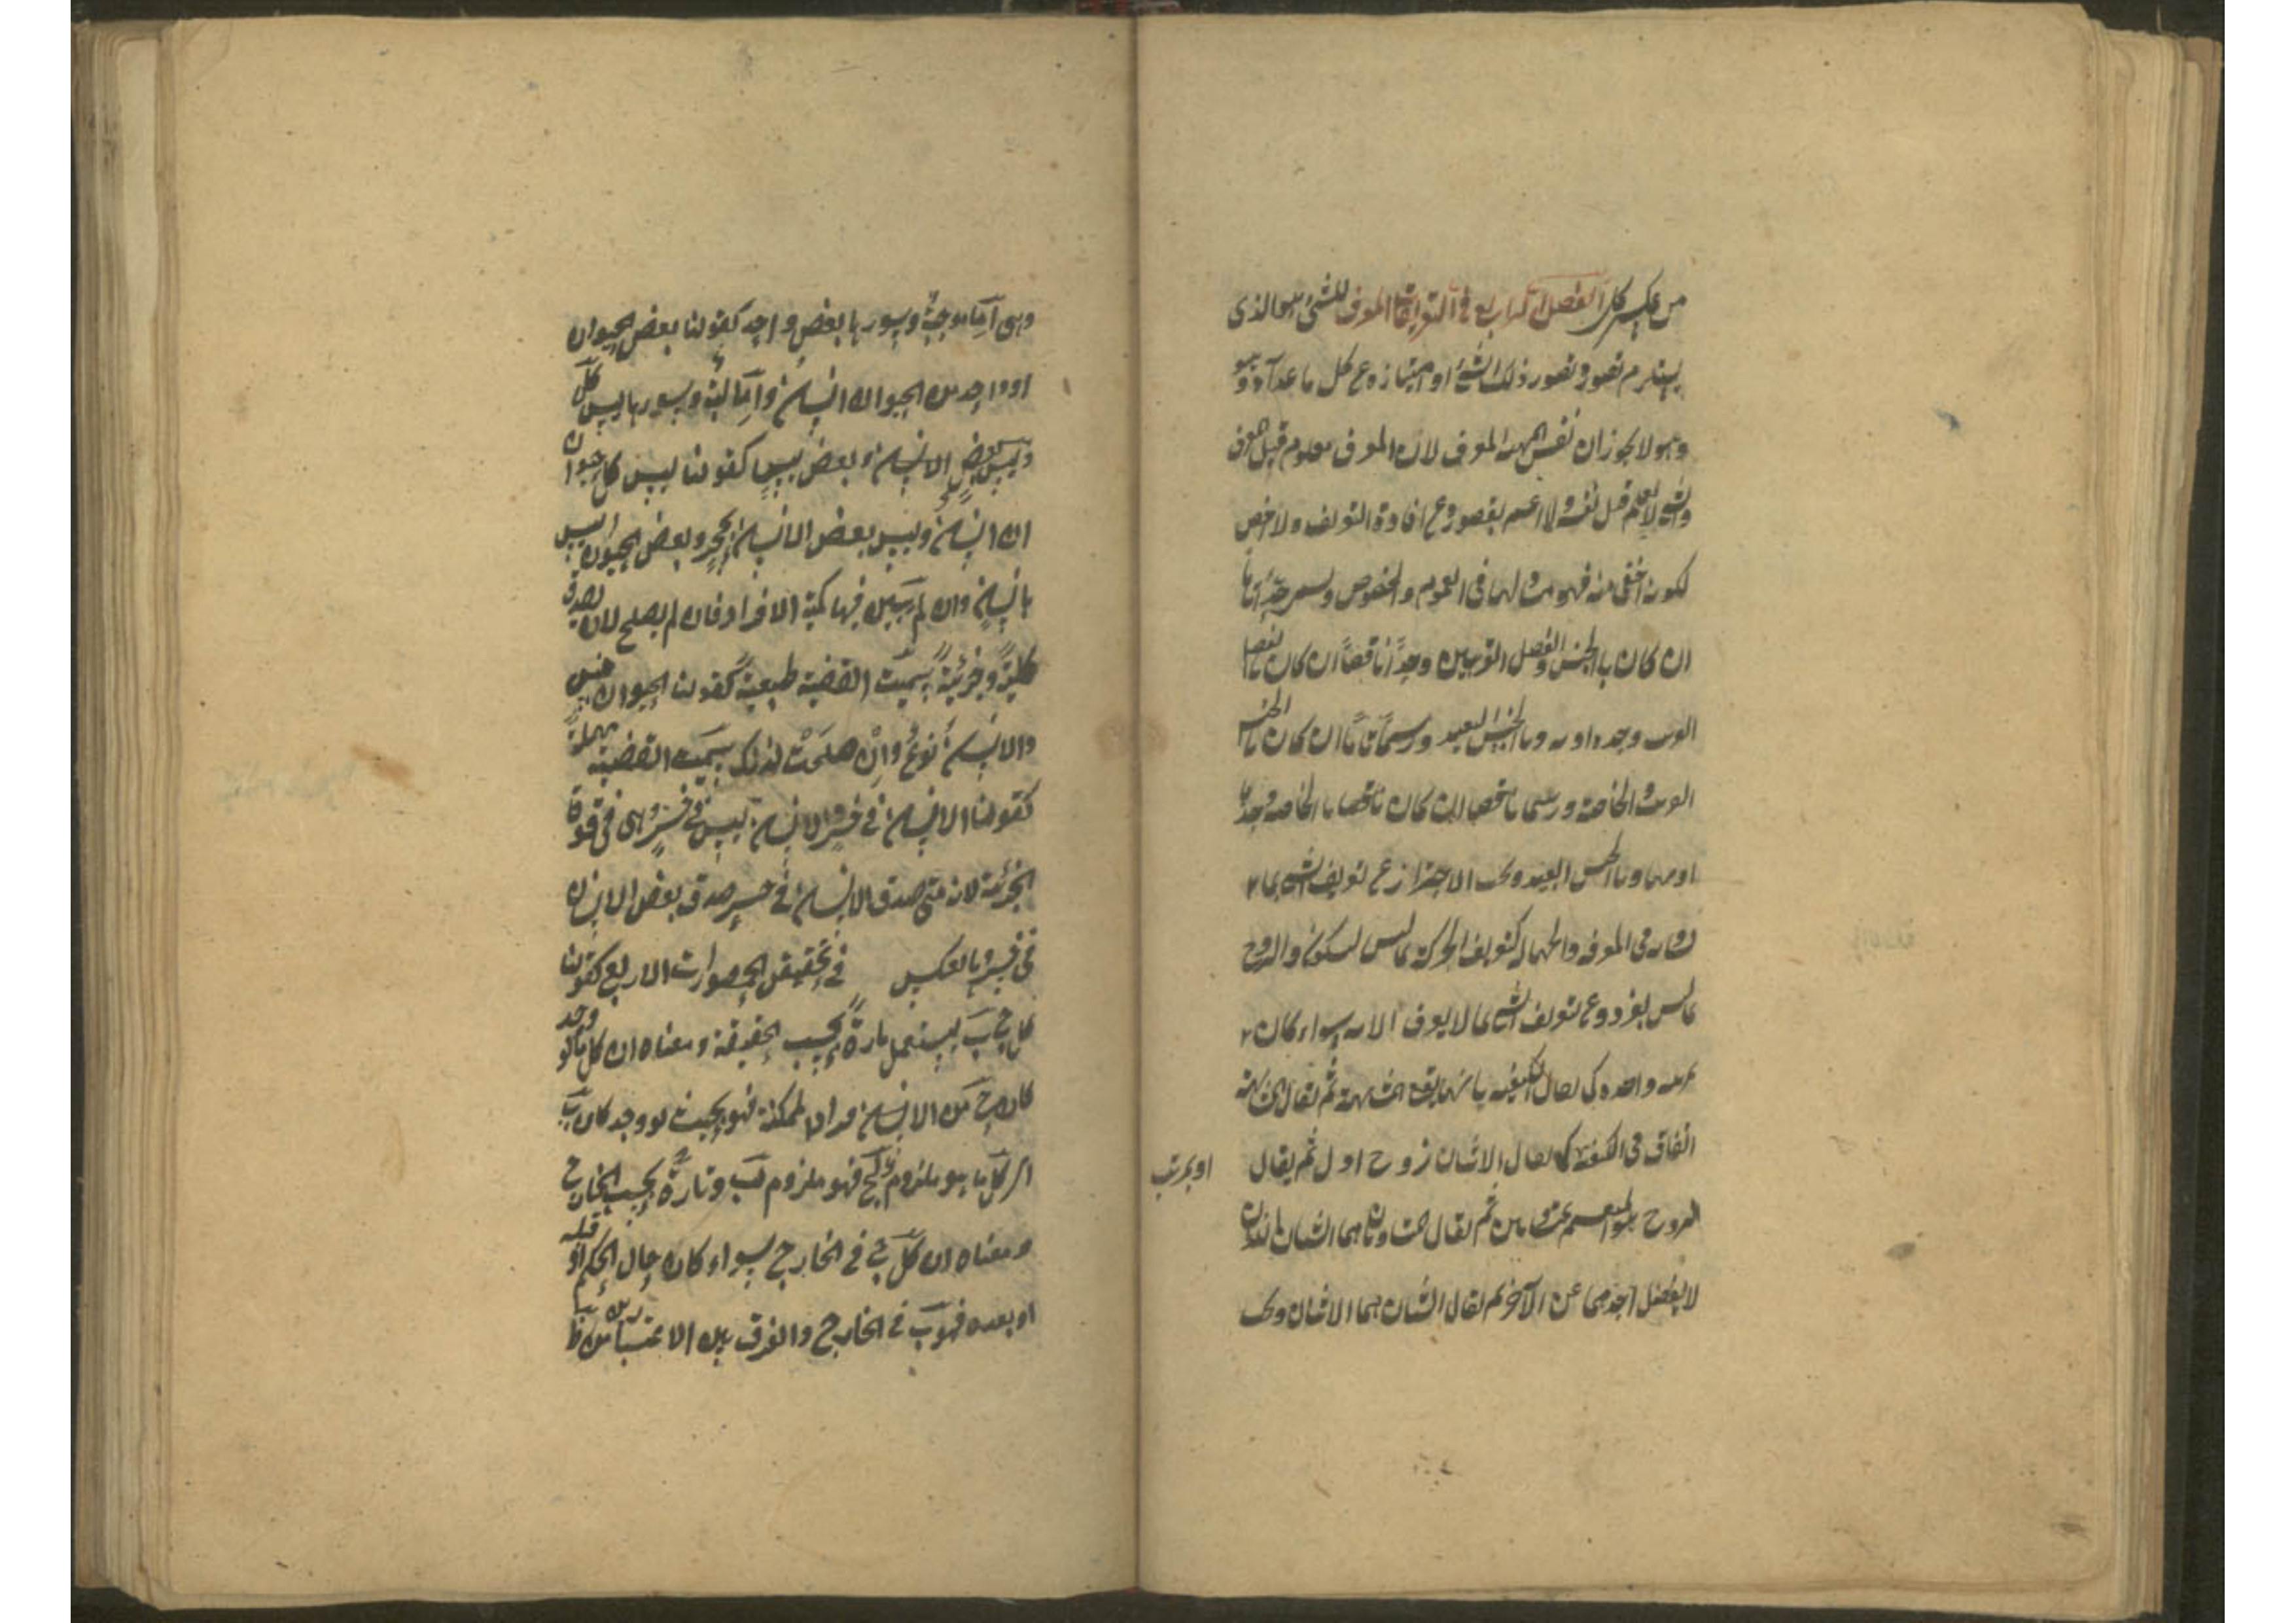 من عكس كلى الفصل الرابع فى التعريفات المعرف للشئ هو الذى
يستلزم تصوره تصور ذلك الشئ او امتيازه عن كل ما عداه
وهو لا يجوز ان نفس المهية المعرف لان المعرف معلوم قبل المعرف
والشئ لا يعلم قبل نفسه ولا اعم لقصوره عن افادة التعريف ولا اخص
لكونه اخفى منه فهو مساو لها فى العموم والخصوص ويسمى حدا تاما
ان كان بالجنس والفصل القريبين وحدا ناقصا ان كان بالفصل
القريب وحده او به وبالجنس البعيد ورسما تاما ان كان بالجنس
القريب والخاصة ورسما ناقصا ان كان بالخاصة وحدها
او بها وبالجنس البعيد ويجب الاحتراز عن تعريف الشئ بما
يساويه فى المعرفة والجهالة كتعريف الحركة بما ليس بسكون والزوج
بما ليس بفرد وعن تعريف الشئ بما لا يعرف الا به سواء كان
بمرتبة واحدة كما يقال الكيفية ما بها يقع المشابهة ثم يقال المشابهة
اتفاق فى الكيفية كما يقال الاثنان زوج اول ثم يقال
او بمراتب
الزوج هو المنقسم بمتساويين ثم يقال المتساويان هما الشيئان اللذان
لا يفضل احدهما عن الآخر ثم يقال الشيئان هما الاثنان ويجب
وهى اما موجبة وسورها بعض وواحد كقولنا بعض الحيوان
او واحد من الحيوان انسان واما سالبة وسورها ليس كل
وليس بعض وبعض ليس كقولنا ليس كل حيوان
انسان وليس بعض الانسان بحجر وبعض الحيوان ليس
بانسان وان لم يبين فيها كمية الافراد فان لم يصلح لان تصدق
كلية وجزئية سميت القضية طبيعية كقولنا الحيوان جنس
والانسان نوع وان صلحت لذلك سميت القضية مهملة
كقولنا الانسان فى خسر والانسان ليس فى خسر وهى فى قوة
الجزئية لانه متى صدق الانسان فى خسر صدق بعض الانسان
فى خسر وبالعكس فى تحقيق المحصورات الاربع كقولنا
كل ج ب يستعمل تارة بحسب الحقيقة ومعناه ان كل ما لو وجد
كان ج من الافراد الممكنة فهو بحيث لو وجد كان ب
اى كل ما هو ملزوم ج فهو ملزوم ب وتارة بحسب الخارج
ومعناه ان كل ج فى الخارج سواء كان حال الحكم او قبله
او بعده فهو ب فى الخارج والفرق بين الاعتبارين ظا